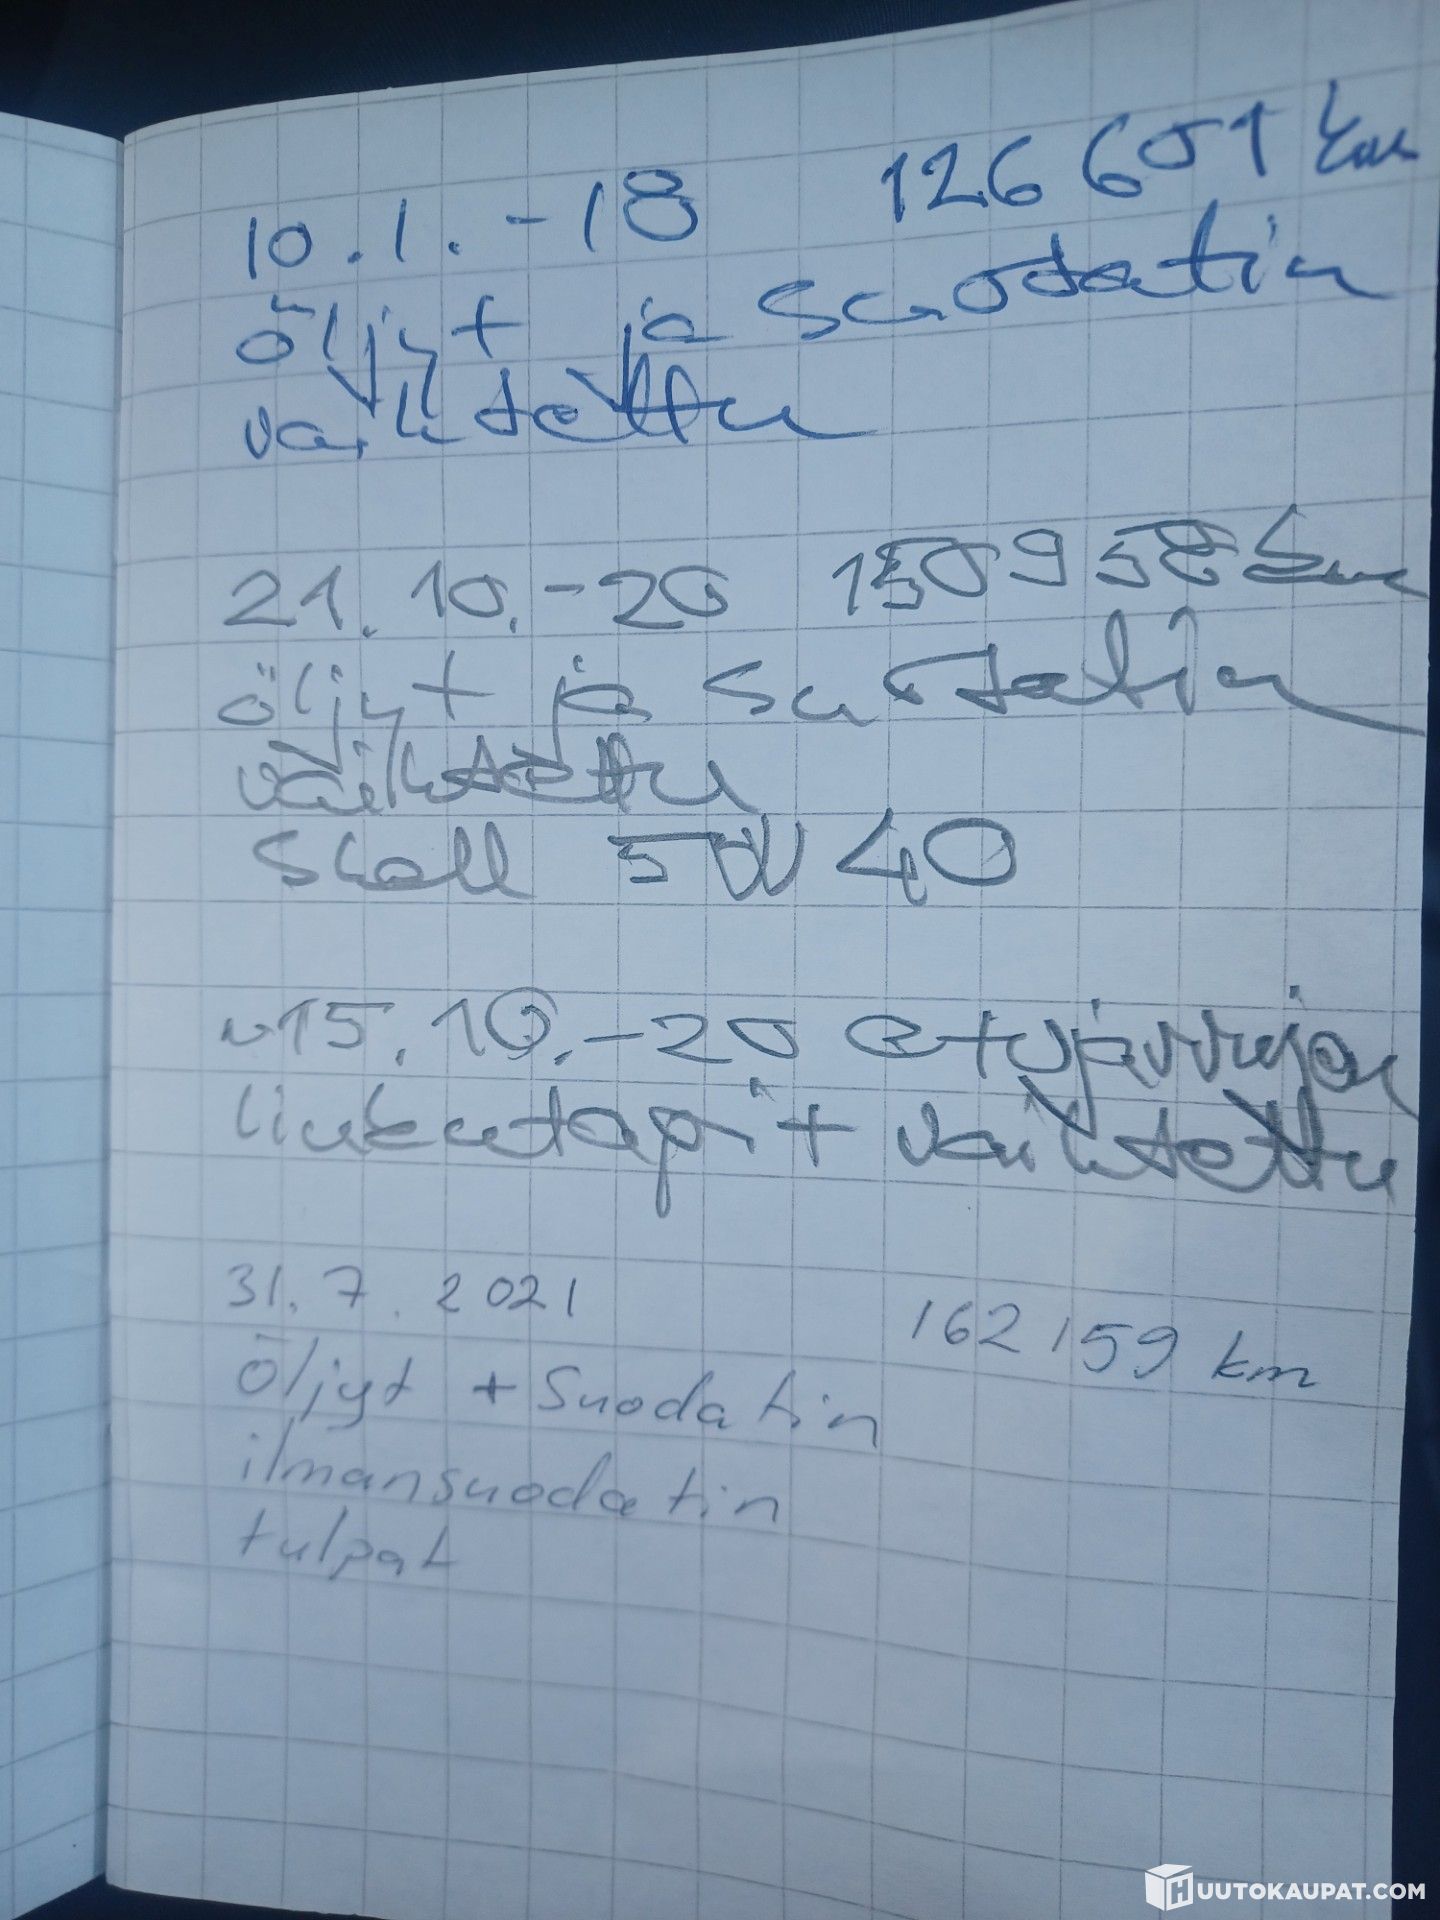 10.1.-18 126 601 km
öljyt ja suodatin
vaihdettu
21.10.-20 150958 km
öljyt ja suodatin
vaihdettu
Shell 5W40
~15.10.-20 etujarrujen
liukutapit vaihdettu
31.7.2021 162 159 km
Öljyt + Suodatin
ilmansuodatin
tulpat
HUUTOKAUPAT.COM